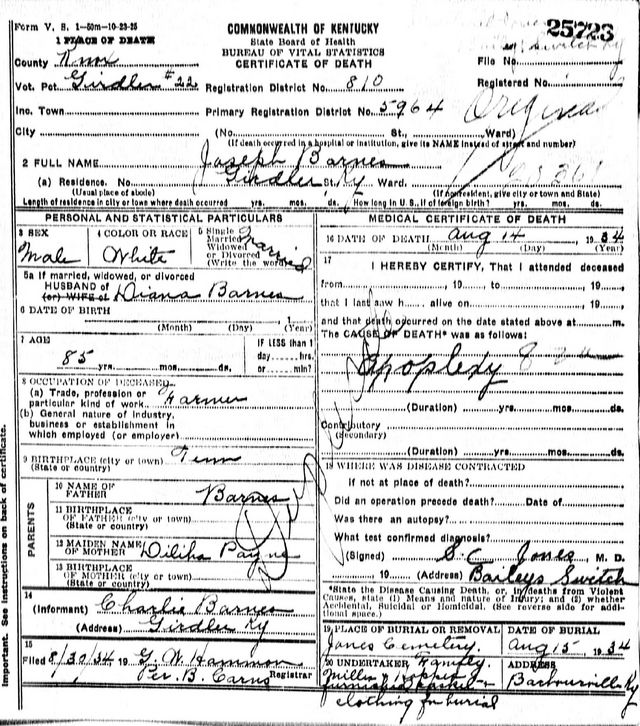 Form V. S. 1-50m-10-23-25
COMMONWEALTH OF KENTUCKY
25723
1 PLACE OF DEATH
State Board of Health
BUREAU OF VITAL STATISTICS
County Knox
CERTIFICATE OF DEATH
File No.
Vot. Pct. Girdler #22 Registration District No. 810
Registered No.
Inc. Town Primary Registration District No. 5964
Original
City (No. St., Ward)
(If death occurred in a hospital or institution, give its NAME instead of street and number)
2 FULL NAME Joseph Barnes
(a) Residence. No. Girdler St., Ky Ward.
(Usual place of abode) (If nonresident, give city or town and State)
Length of residence in city or town where death occurred yrs. mos. ds. How long in U. S., if of foreign birth? yrs. mos. ds.
PERSONAL AND STATISTICAL PARTICULARS
3 SEX Male
4 COLOR OR RACE White
5 Single Married Widowed or Divorced (Write the word) Married
5a If married, widowed, or divorced
HUSBAND of
(or) WIFE of Diana Barnes
6 DATE OF BIRTH
(Month) (Day) (Year)
7 AGE IF LESS than 1
85 yrs. mos. ds. day hrs. or min?
8 OCCUPATION OF DECEASED
(a) Trade, profession or
particular kind of work Farmer
(b) General nature of industry,
business or establishment in
which employed (or employer)
9 BIRTHPLACE (city or town) Tenn
(State or country)
PARENTS
10 NAME OF
FATHER Barnes
11 BIRTHPLACE
OF FATHER (city or town)
(State or country)
12 MAIDEN NAME
OF MOTHER Diliha Payne
13 BIRTHPLACE
OF MOTHER (city or town)
(State or country)
14
(Informant) Charlie Barnes
(Address) Girdler Ky
15
Filed 8/30/34 19 G. W. Hammon
Per. B. Carns Registrar
MEDICAL CERTIFICATE OF DEATH
16 DATE OF DEATH Aug 14 1934
(Month) (Day) (Year)
17
I HEREBY CERTIFY, That I attended deceased
from , 19 , to , 19 ,
that I last saw h alive on , 19 ,
and that death occurred on the date stated above at m.
The CAUSE OF DEATH* was as follows:
Apoplexy
(Duration) yrs. mos. ds.
Contributory
(Secondary)
(Duration) yrs. mos. ds.
18 WHERE WAS DISEASE CONTRACTED
if not at place of death?
Did an operation precede death? Date of
Was there an autopsy?
What test confirmed diagnosis?
(Signed) S. C. Jones, M. D.
, 19 (Address) Baileys Switch
*State the Disease Causing Death, or, in deaths from Violent
Causes, state (1) Means and nature of Injury; and (2) whether
Accidental, Suicidal or Homicidal. (See reverse side for addi-
tional space.)
19 PLACE OF BURIAL OR REMOVAL
Jones Cemetery
DATE OF BURIAL
Aug 15 1934
20 UNDERTAKER Family
ADDRESS
Barbourville Ky
clothing for burial
Important. See instructions on back of certificate.